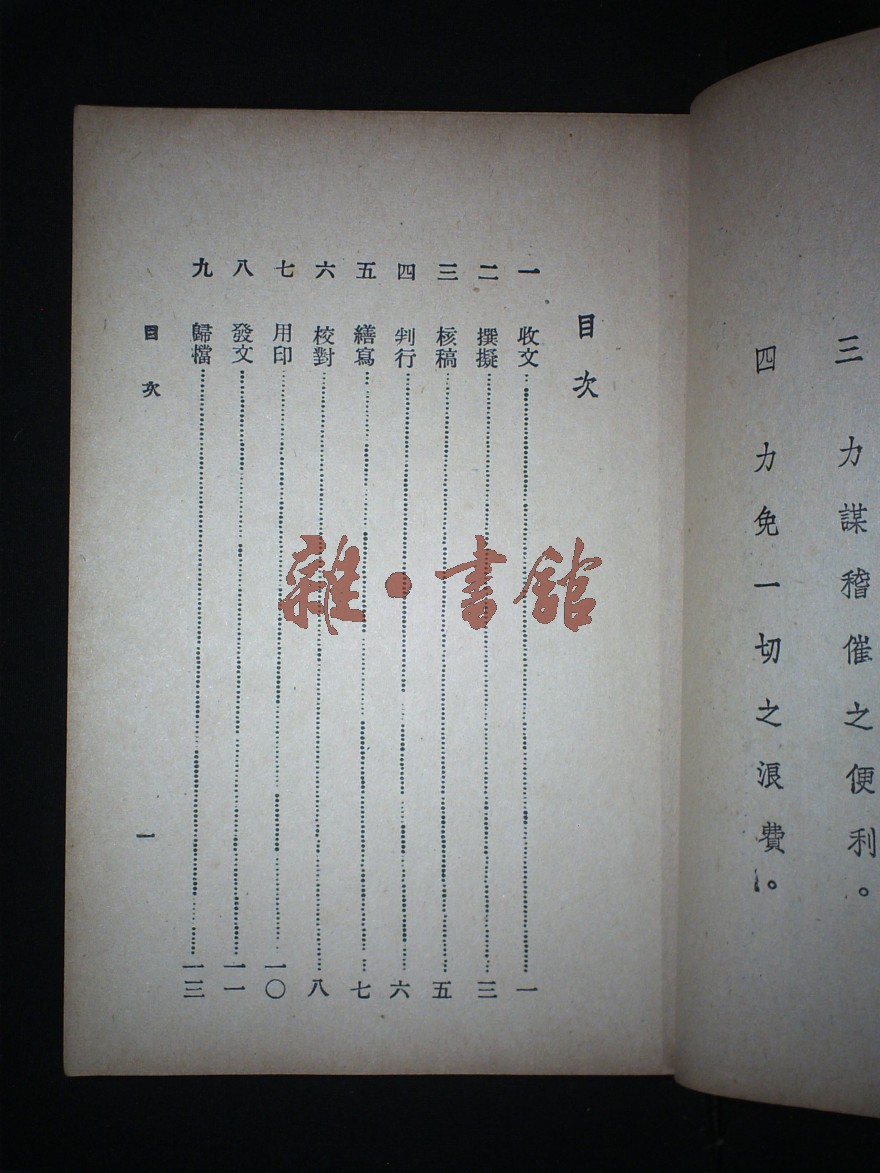 三 力謀稽催之便利。
四 力免一切之浪費。
目次
一 收文 一
二 撰擬 三
三 核稿 五
四 判行 六
五 繕寫 七
六 校對 八
七 用印 一〇
八 發文 一一
九 歸檔 一三
目次 一
雜·書館